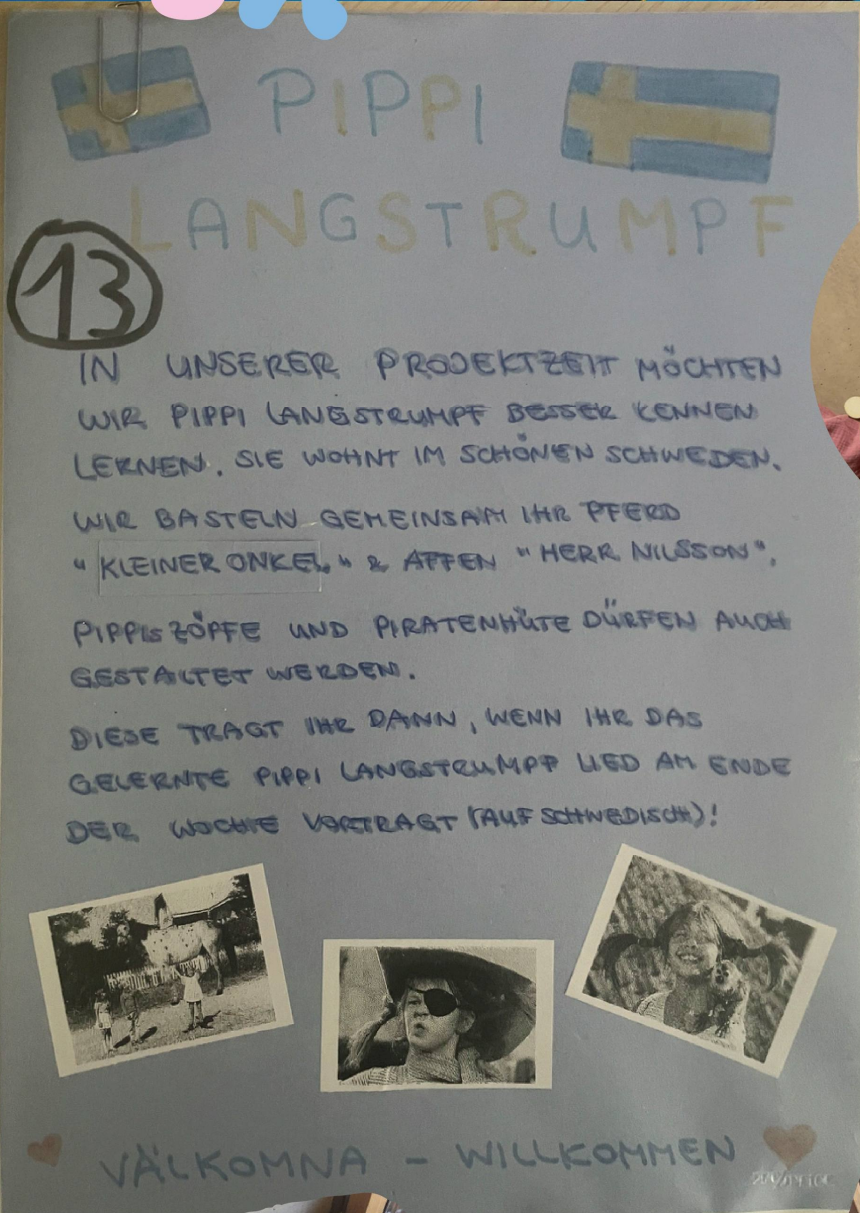 PIPPI
LANGSTRUMPF
13
IN UNSERER PROJEKTZEIT MÖCHTEN
WIR PIPPI LANGSTRUMPF BESSER KENNEN
LERNEN. SIE WOHNT IM SCHÖNEN SCHWEDEN.
WIR BASTELN GEMEINSAM IHR PFERD
"KLEINER ONKEL" & AFFEN "HERR NILSSON".
PIPPIs ZÖPFE UND PIRATENHÜTE DÜRFEN AUCH
GESTALTET WERDEN.
DIESE TRAGT IHR DANN, WENN IHR DAS
GELERNTE PIPPI LANGSTRUMPF LIED AM ENDE
DER WOCHE VORTRAGT (AUF SCHWEDISCH)!
VÄLKOMNA - WILLKOMMEN